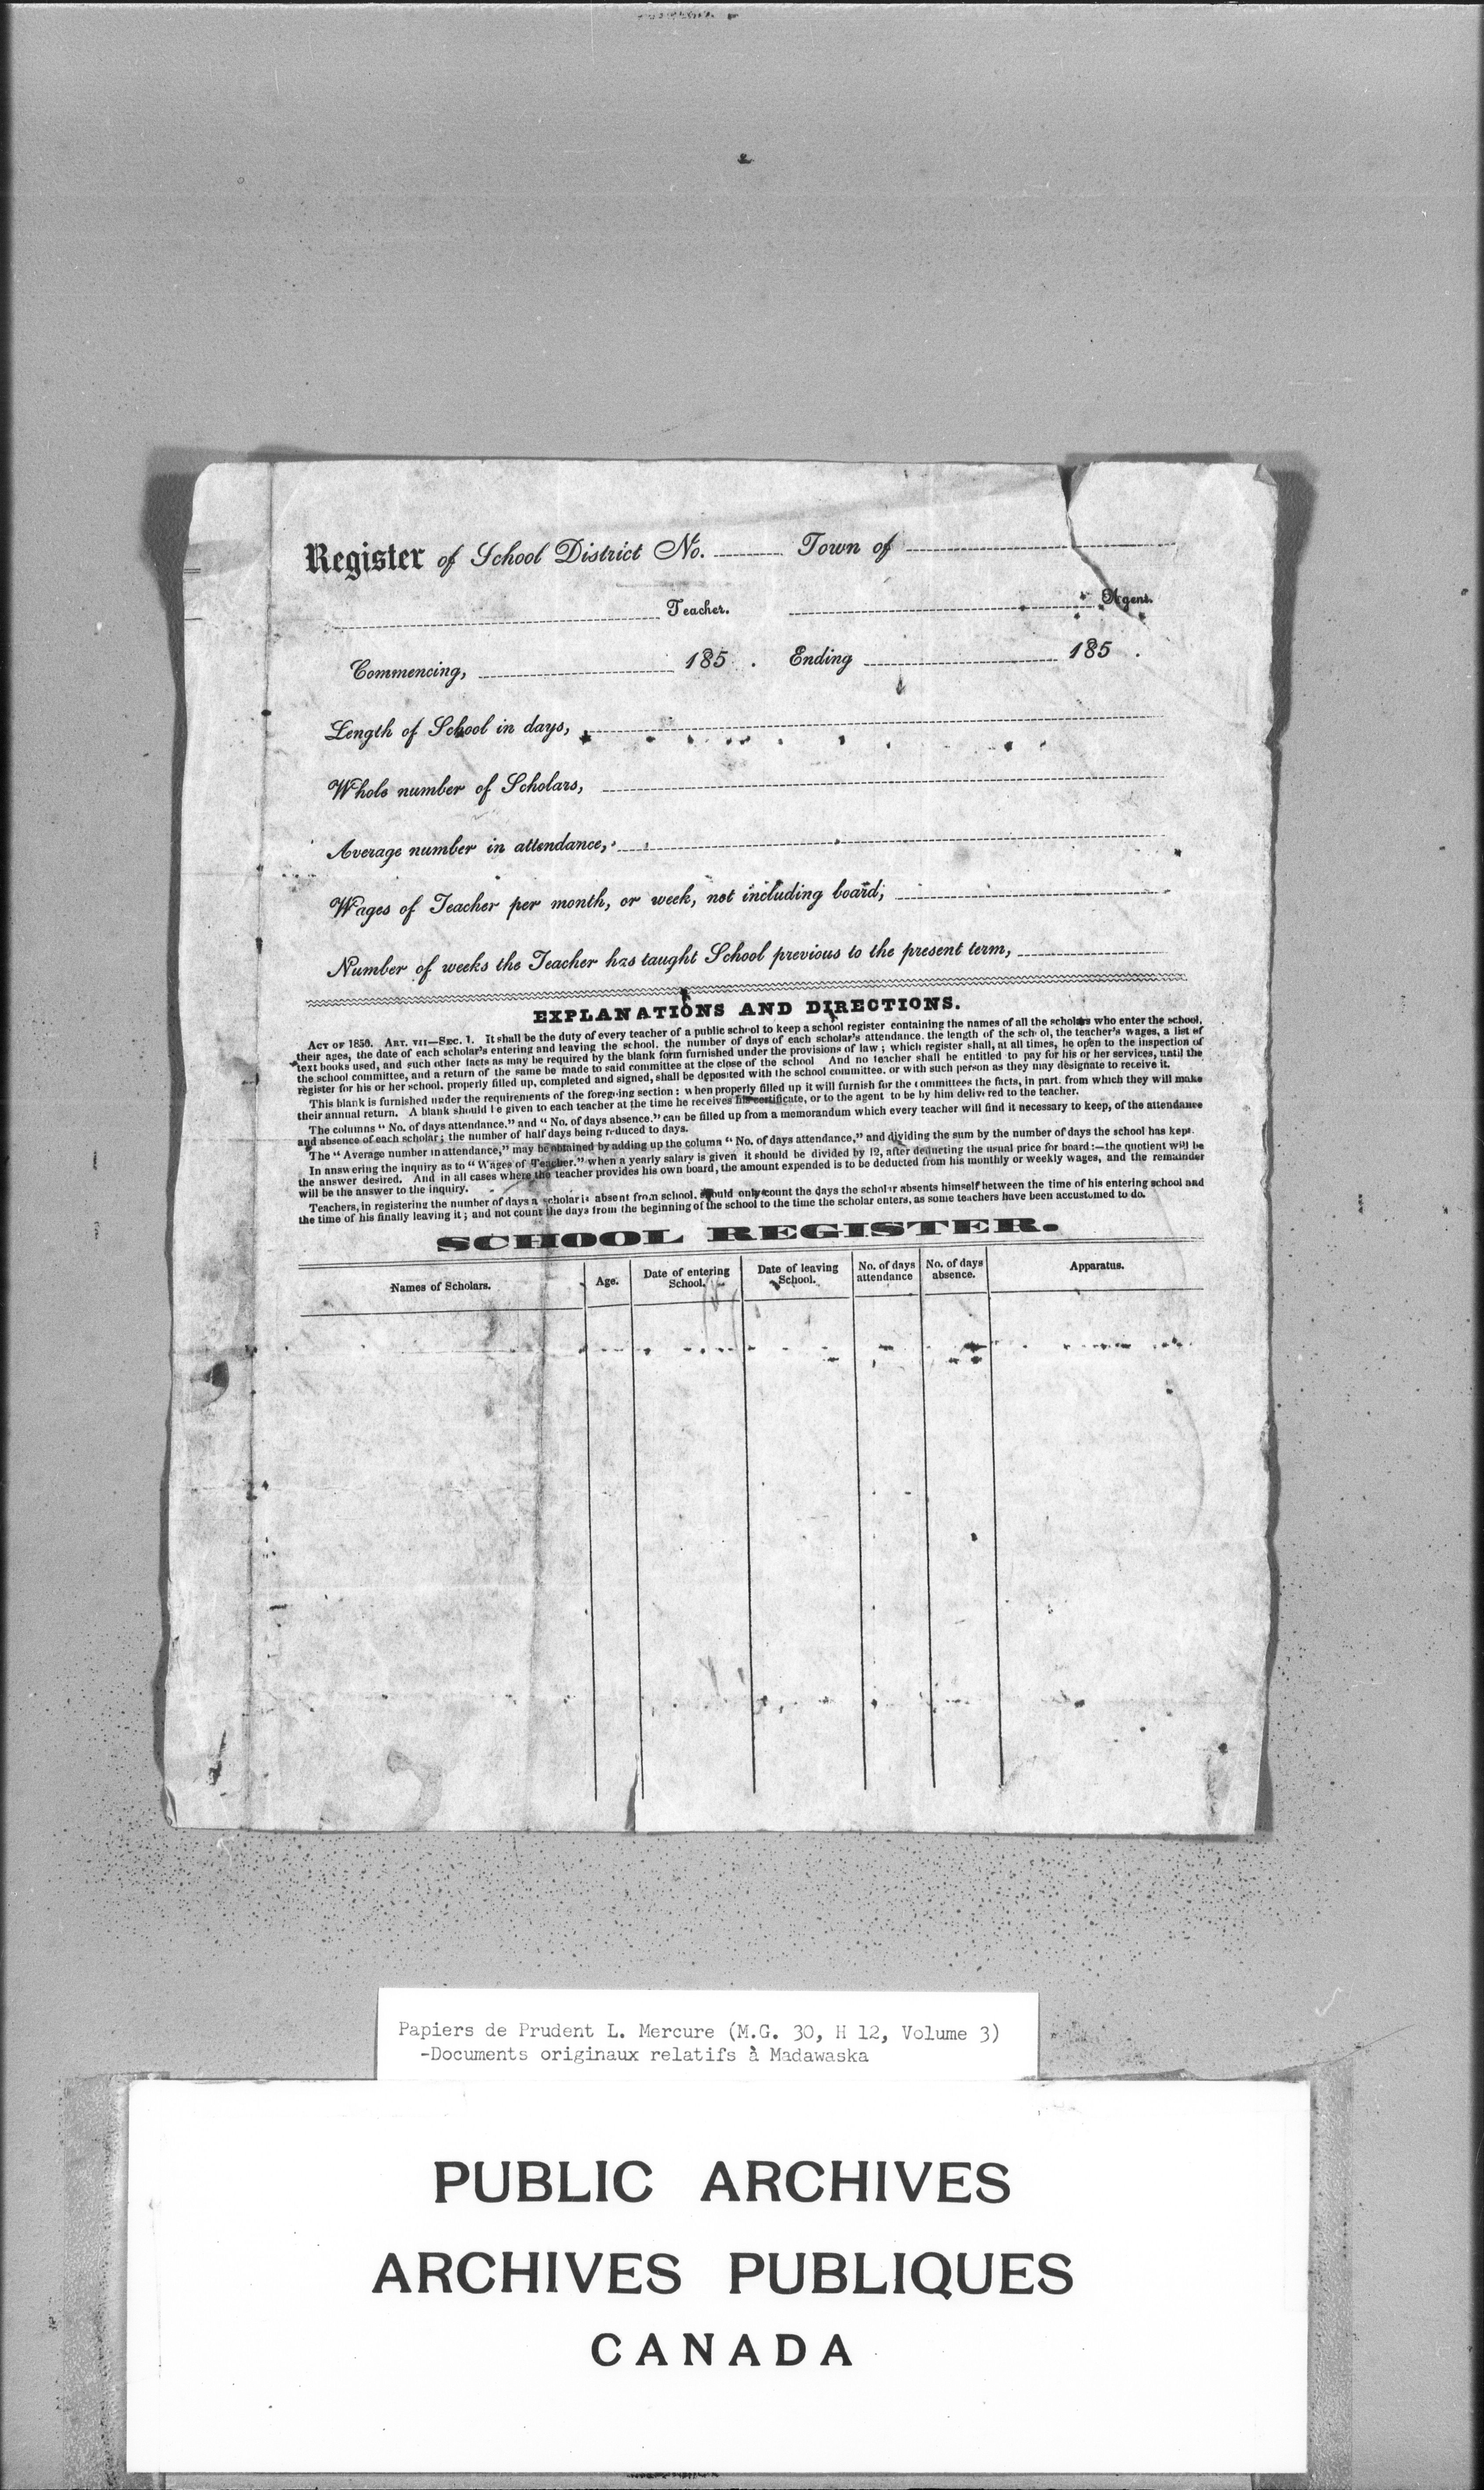 Register of School District No. Town of
Teacher. Agent.
Commencing, 185 . Ending 185 .
Length of School in days,
Whole number of Scholars,
Average number in attendance,
Wages of Teacher per month, or week, not including board,
Number of weeks the Teacher has taught School previous to the present term,
EXPLANATIONS AND DIRECTIONS.
ACT OF 1850. ART. VII—SEC. 1. It shall be the duty of every teacher of a public school to keep a school register containing the names of all the scholars who enter the school,
their ages, the date of each scholar's entering and leaving the school, the number of days of each scholar's attendance, the length of the school, the teacher's wages, a list of
text books used, and such other facts as may be required by the blank form furnished under the provisions of law; which register shall, at all times, be open to the inspection of
the school committee, and a return of the same be made to said committee at the close of the school And no teacher shall be entitled to pay for his or her services, until the
register for his or her school, properly filled up, completed and signed, shall be deposited with the school committee, or with such person as they may designate to receive it.
This blank is furnished under the requirements of the foregoing section: when properly filled up it will furnish for the committees the facts, in part, from which they will make
their annual return. A blank should be given to each teacher at the time he receives his certificate, or to the agent to be by him delivered to the teacher.
The columns "No. of days attendance," and "No. of days absence," can be filled up from a memorandum which every teacher will find it necessary to keep, of the attendance
and absence of each scholar; the number of half days being reduced to days.
The "Average number in attendance," may be obtained by adding up the column "No. of days attendance," and dividing the sum by the number of days the school has kept.
In answering the inquiry as to "Wages of Teacher," when a yearly salary is given it should be divided by 12, after deducting the usual price for board:—the quotient will be
the answer desired. And in all cases where the teacher provides his own board, the amount expended is to be deducted from his monthly or weekly wages, and the remainder
will be the answer to the inquiry.
Teachers, in registering the number of days a scholar is absent from school, should only count the days the scholar absents himself between the time of his entering school and
the time of his finally leaving it; and not count the days from the beginning of the school to the time the scholar enters, as some teachers have been accustomed to do.
SCHOOL REGISTER.
Names of Scholars. Age. Date of entering School. Date of leaving School. No. of days attendance No. of days absence. Apparatus.
Papiers de Prudent L. Mercure (M.G. 30, H 12, Volume 3)
-Documents originaux relatifs à Madawaska
PUBLIC ARCHIVES
ARCHIVES PUBLIQUES
CANADA